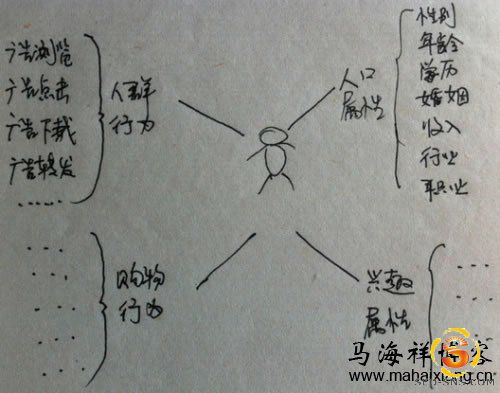 广告浏览
广告点击
广告下载
广告转发
......
人群
行为
人口
属性
性别
年龄
学历
婚姻
收入
行业
职业
...
...
...
...
...
购物
行为
兴趣
属性
...
...
...
马海祥博客
www.mahaixiang.cn